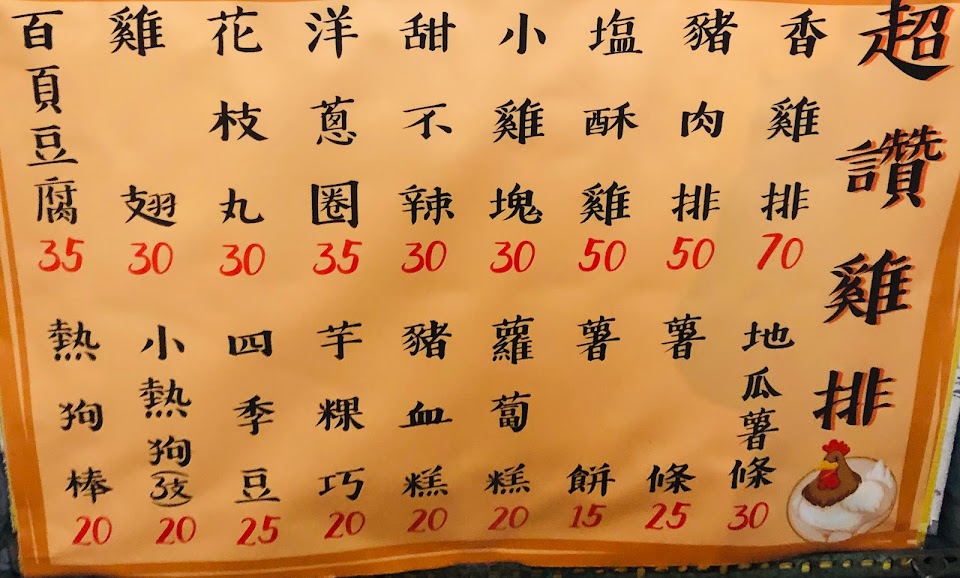 超讚雞排
香雞排
70
豬肉排
50
塩酥雞
50
小雞塊
30
甜不辣
30
洋蔥圈
35
花枝丸
30
雞翅
30
百頁豆腐
35
地瓜薯條
30
薯條
25
薯餅
15
蘿蔔糕
20
豬血糕
20
芋粿巧
20
四季豆
25
小熱狗(3支)
20
熱狗棒
20